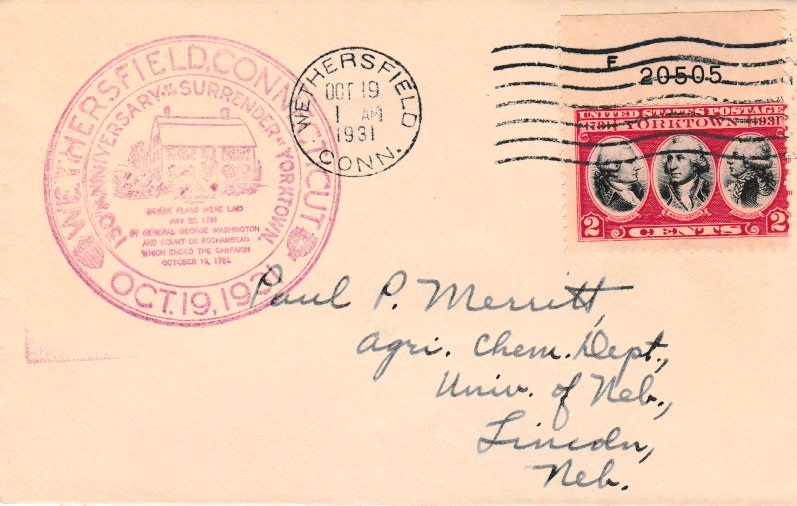 WETHERSFIELD, CONNECTICUT
150TH ANNIVERSARY OF THE SURRENDER AT YORKTOWN.
WHERE PLANS WERE LAID
MAY 22, 1781
BY GENERAL GEORGE WASHINGTON
AND COUNT DE ROCHAMBEAU
WHICH ENDED THE CAMPAIGN
OCTOBER 19, 1781.
OCT. 19, 1931
WETHERSFIELD
OCT 19
1 AM
1931
CONN.
F
20505
UNITED STATES POSTAGE
1781 YORKTOWN 1931
2 CENTS 2
Paul P. Merritt,
Agri. Chem. Dept.,
Univ. of Neb.,
Lincoln,
Neb.